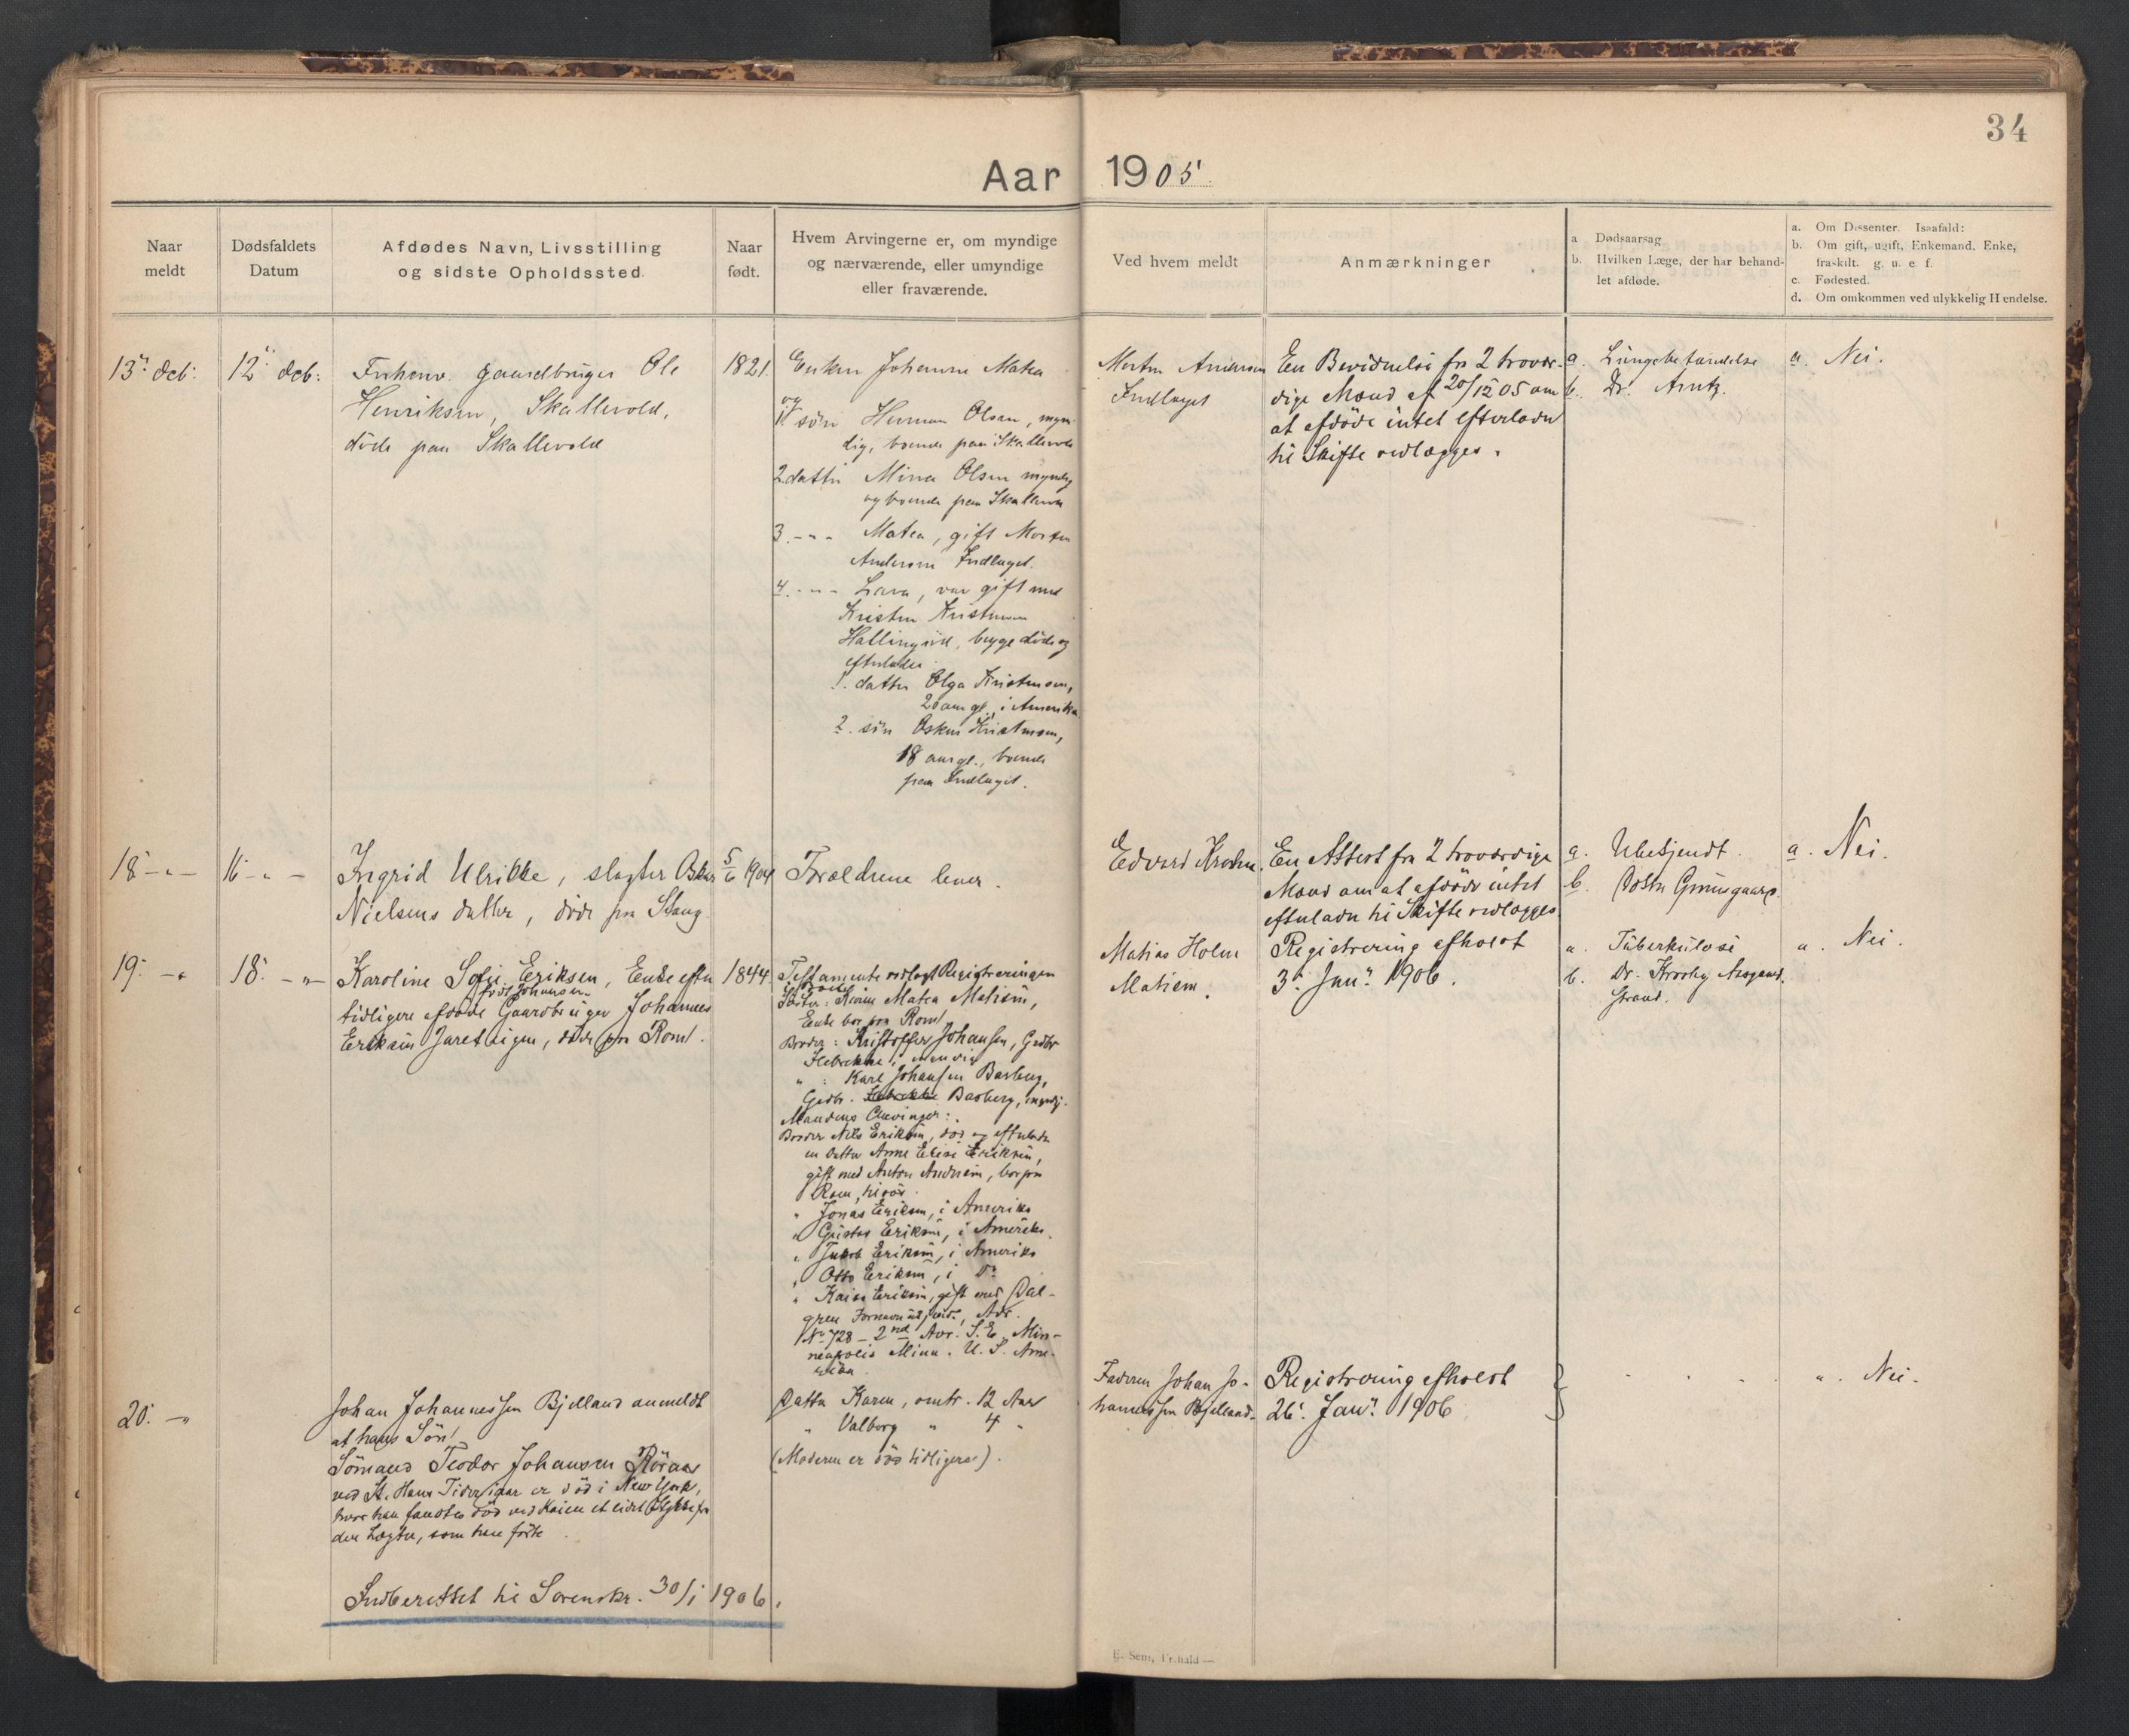 34
Aar 1905.
Naar meldt
Dødsfaldets Datum
Afdødes Navn, Livsstilling og sidste Opholdssted.
Naar født.
Hvem Arvingerne er, om myndige og nærværende, eller umyndige eller fraværende.
Ved hvem meldt
Anmærkninger
a Dødsaarsag
b. Hvilken Læge, der har behandlet afdøde.
a. Om Dissenter. Isaafald:
b. Om gift, ugift, Enkemand. Enke, fraskilt. g. u. e. f.
c. Fødested.
d. Om omkommen ved ulykkelig Hendelse.
13' dcb:
12' dcb:
Forhenv. gaardbruger Ole
Henriksen, Skallevold,
döde paa Skallevold
1821.
Enken Johanne Matea
og
1 sön Herman Olsen, myn-
dig, boende paa Skallevold
2. datter Mina Olsen myndig
og boende paa Skallevold
3. -"- Matea, gift Morten
Andersen Indlaget.
4. -"- Lava, var gift med
Kristen Kristensen
Hallingröd, begge döde og
efterlader
1. datter Olga Kristensen,
20 aar gl., i Amerika
2. sön Oskar Kristensen,
18 aar gl., boende
paa Indlaget.
Morten Andersen
Indlaget
En Bevidnelse fra 2 trovær-
dige Mænd af 20/12 05 om
at afdöde intet efterlader
til Skifte vedlægges.
a. Lungebetændelse
b. Dr. Arntz.
a. Nei.
18 -"-
16 -"-
Ingrid Ulrikke, slagter Oskar
Nielsens datter, döde paa Stang.
5/6 1904
Forældrene lever.
Edvard Krohn.
En Attest fra 2 troværdige
Mænd om at afdöde intet
efterlader til Skifte vedlægges
a. Ubekjendt.
b. Doktor Grimsgaard.
a. Nei.
19. -"-
18. -"-
Karoline Sofie Eriksen, Enke efter
födt Johansen
tidligere afdöde Gaardbruger Johannes
Eriksen Jareteigen, döde paa Rom.
1844.
Testamente vedlagt Registreringen
Söster: Matea Matisen,
Enke bor paa Rom.
Broder: Kristoffer Johansen, Grdbr
Hebekke, myndig
" : Karl Johansen Basberg,
Grdbr. Basberg, myndig.
Mandens Arvinger:
Broder Nils Eriksen, död og efterlader
en datter Anne Elise Eriksen,
gift med Anton Andersen, bor paa
Rom,
" Jonas Eriksen, i Amerika
" Gustav Eriksen, i Amerika.
" Jakob Eriksen, i Amerika
" Otto Eriksen, i Do
" Eriksen, gift med Dal-
gren Fornavn Adr.
No 728 - 2nd Avr. S.E. Min-
neapolis Minn. U. S. Ame-
rika
Matias Holm
Matisen.
Registrering afholdt
3' Jan. 1906.
a. Tuberkulose
b. Dr. Aasgaard-
strand.
a. Nei.
20. -"-
Johan Johannessen Bjelland anmeldt
at hans Sön
Sömand Teodor Johansen Röraas
ved St. Hans Tider iaar er död i New York,
hvor han fandtes död ved Kaien et lidet Stykke fra
den Lægter, som han förte.
Datter Karen, omtr. 12 Aar
" Valborg " 4 "
(Moderen er död tidligere).
Faderen Johan Jo-
hannessen Bjelland.
Registrering afholdt
26. Jan. 1906
". Nei.
Indberettet til Sorenskr. 30/1 1906.
E. Sem, Fr.hald —